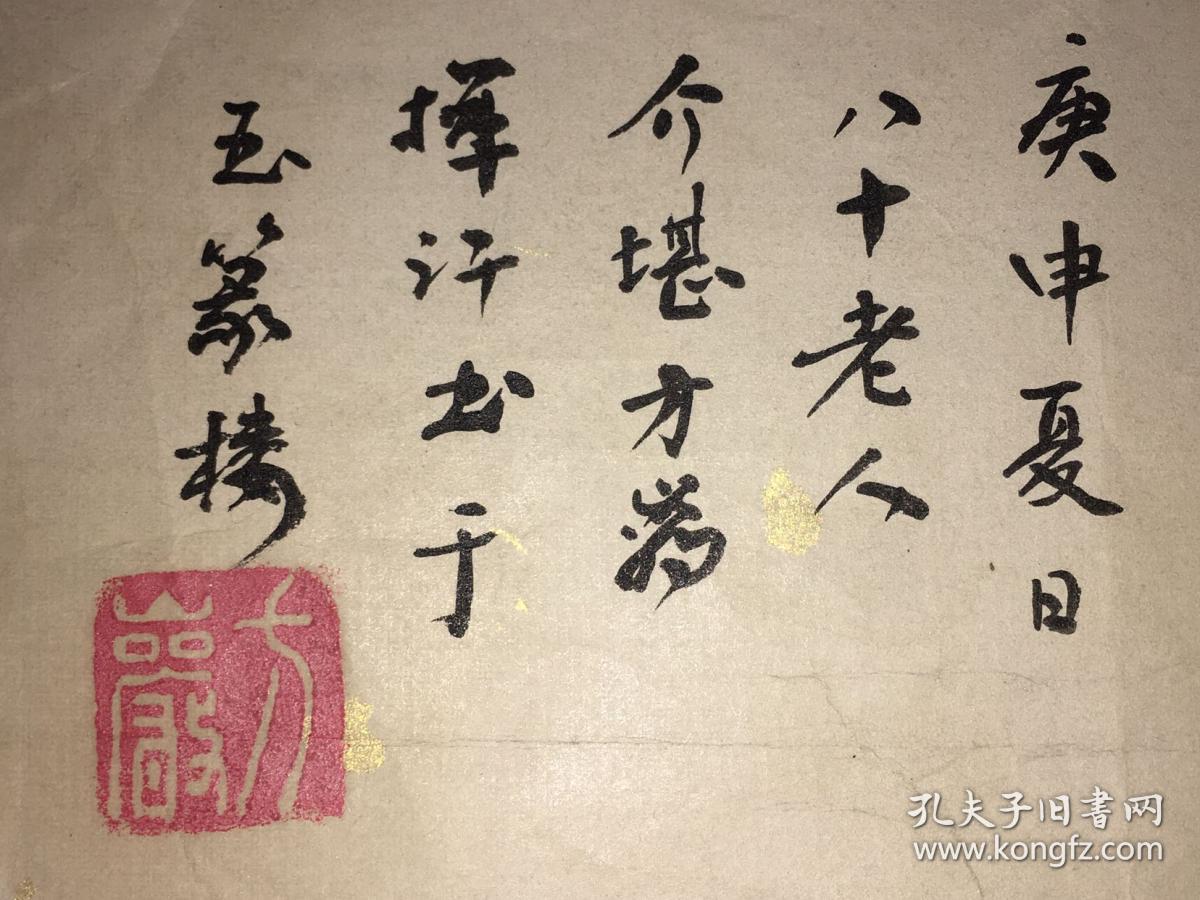 庚申夏日
八十老人
介堪方岩
挥汗书于
玉篆楼
方巖
孔夫子旧书网
www.kongfz.com